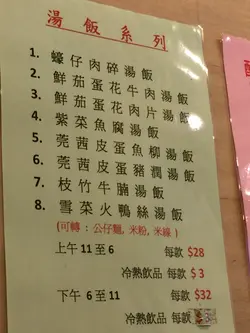 湯飯系列
1. 蠔仔肉碎湯飯
2. 鮮茄蛋花牛肉湯飯
3. 鮮茄蛋花肉片湯飯
4. 紫菜魚腐湯飯
5. 莞茜皮蛋魚柳湯飯
6. 莞茜皮蛋豬潤湯飯
7. 枝竹牛腩湯飯
8. 雪菜火鴨絲湯飯
(可轉：公仔麵, 米粉, 米線)
上午 11 至 6 每款 $28
冷熱飲品 每款 $ 3
下午 6 至 11 每款 $32
冷熱飲品 每款